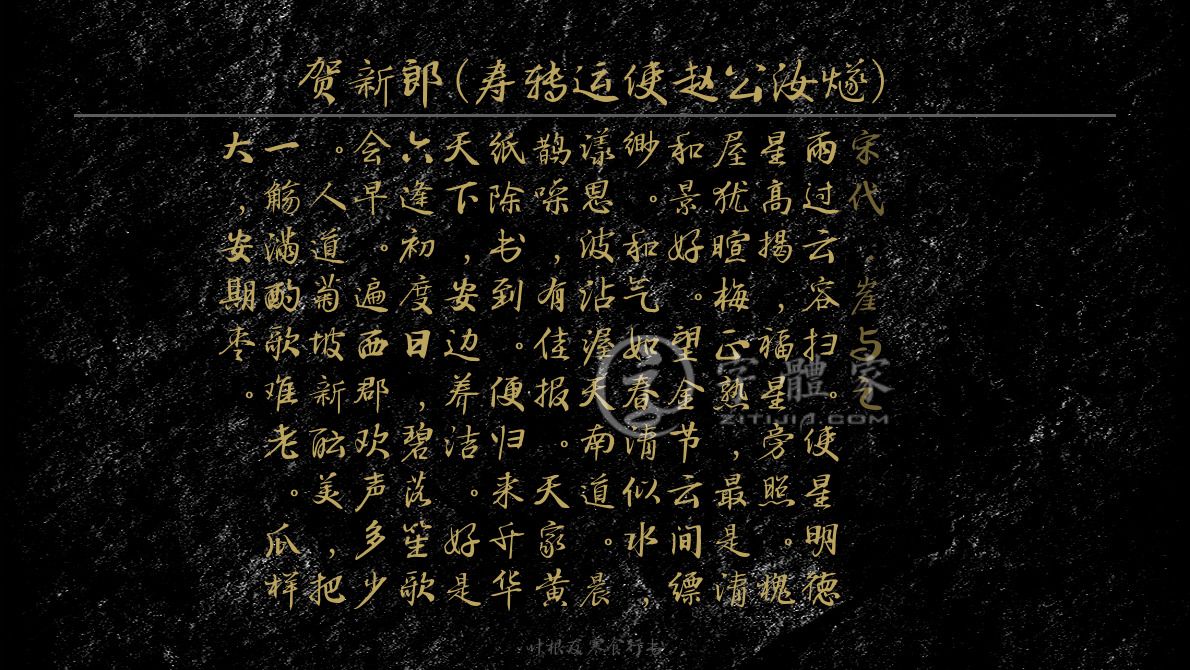 贺新郎(寿转运使赵公汝燧)
宋代：崔与之
雨过云容扫。使星明德
星高揭，福星旁照。槐
屋犹暄梅正熟，最是清
和景好。望金节云间缥
缈。和气如春清似水，
漾恩波沾渥天南道。晨
鹊噪，有佳报。天家黄
纸除书到。便归来升华
天下，安边养洁。好是
六逢初度日，碧落笙歌
会早。遍西郡欢声多少
。人道菊坡新酝美，把
一觞满酌歌难老。瓜样
大，安期枣。
字體家
ZITIJIA.COM
叶根友寒食行书